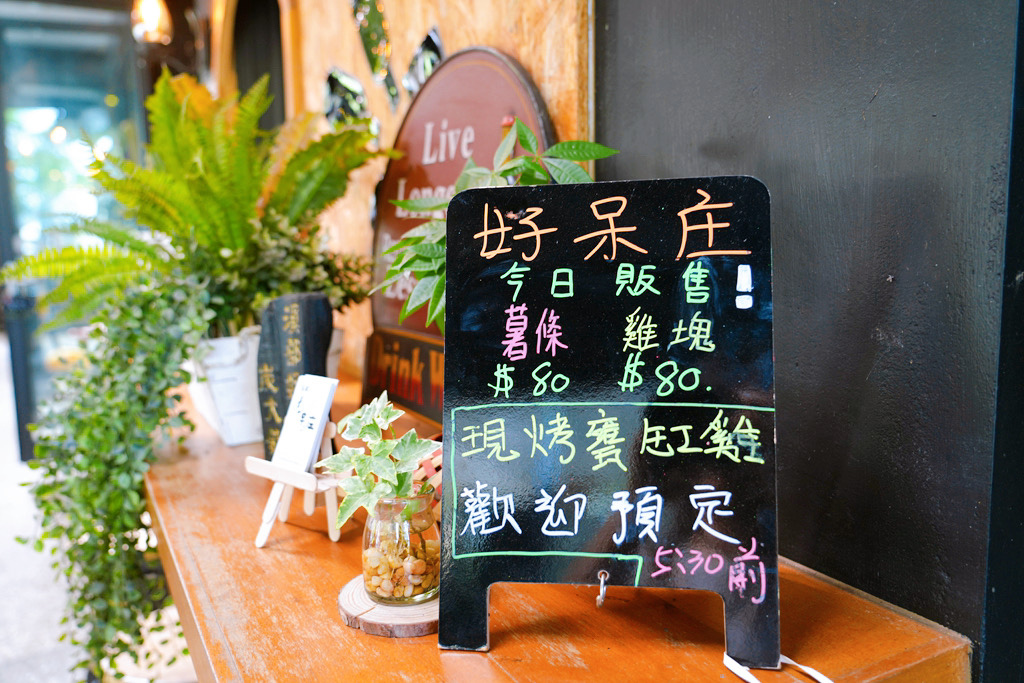 好呆庄
今日販售
薯條 雞塊
$80 $80.
現烤甕缸雞
歡迎預定
5:30前
Live
Drink W